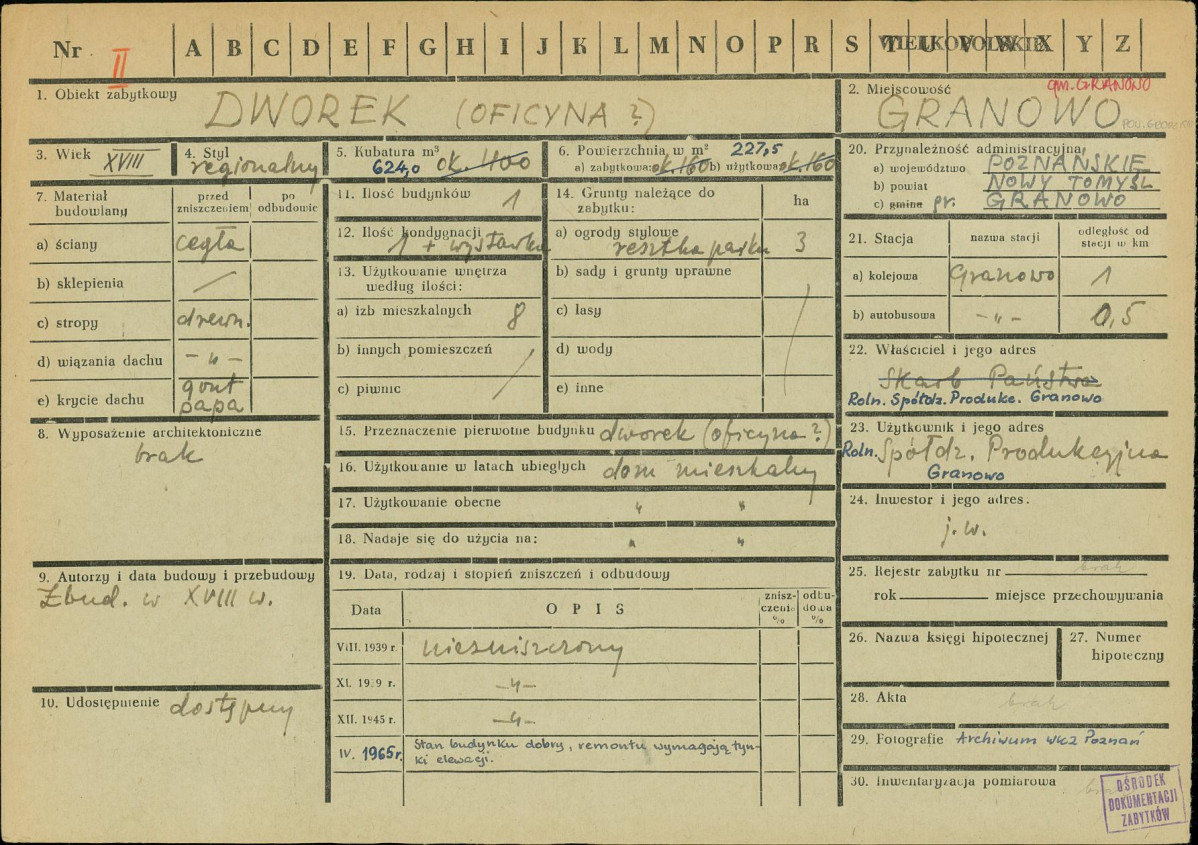 Nr II A B C D E F G H I J K L M N O P R S T U V W X Y Z
WIELKOPOLSKIE
1. Obiekt zabytkowy
DWOREK (OFICYNA ?)
2. Miejscowość
gm. GRANOWO
GRANOWO
3. Wiek XVIII
4. Styl
regionalny
5. Kubatura m³
624,0 ok. 1100
6. Powierzchnia w m² 227,5
a) zabytkowa ok. 160 b) użytkowa ok. 160
7. Materiał budowlany
przed zniszczeniem
po odbudowie
a) ściany cegła
b) sklepienia /
c) stropy drewn.
d) wiązania dachu -„-
e) krycie dachu gont
papa
8. Wyposażenie architektoniczne
brak
9. Autorzy i data budowy i przebudowy
Zbud. w XVIII w.
10. Udostępnienie dostępny
11. Ilość budynków 1
12. Ilość kondygnacji
1 + wystawka
13. Użytkowanie wnętrza
według ilości:
a) izb mieszkalnych 8
b) innych pomieszczeń
c) piwnic
14. Grunty należące do
zabytku:
ha
a) ogrody stylowe
resztka parku 3
b) sady i grunty uprawne
c) łasy
d) wody
e) inne
15. Przeznaczenie pierwotne budynku dworek (oficyna ?)
16. Użytkowanie w latach ubiegłych dom mieszkalny
17. Użytkowanie obecne „ „
18. Nadaje się do użycia na: „ „
19. Data, rodzaj i stopień zniszczeń i odbudowy
Data
OPIS
znisz-
czenie
%
odbu-
dowa
%
VIII. 1939 r. niezniszczony
XI. 1939 r. -„-
XII. 1945 r. -„-
IV. 1965 r. Stan budynku dobry, remontu wymagają tyn-
ki elewacji.
20. Przynależność administracyjna
a) województwo POZNAŃSKIE
b) powiat NOWY TOMYŚL
c) gmina gr. GRANOWO
21. Stacja
nazwa stacji
odległość od
stacji w km
a) kolejowa Granowo 1
b) autobusowa -„- 0,5
22. Właściciel i jego adres
Skarb Państwa
Roln. Spółdz. Produkc. Granowo
23. Użytkownik i jego adres
Roln. Spółdz. Produkcyjna
Granowo
24. Inwestor i jego adres.
j.w.
25. Rejestr zabytku nr brak
rok miejsce przechowywania
26. Nazwa księgi hipotecznej
27. Numer
hipoteczny
28. Akta brak
29. Fotografie Archiwum WKZ Poznań
30. Inwentaryzacja pomiarowa
OŚRODEK
DOKUMENTACJI
ZABYTKÓW